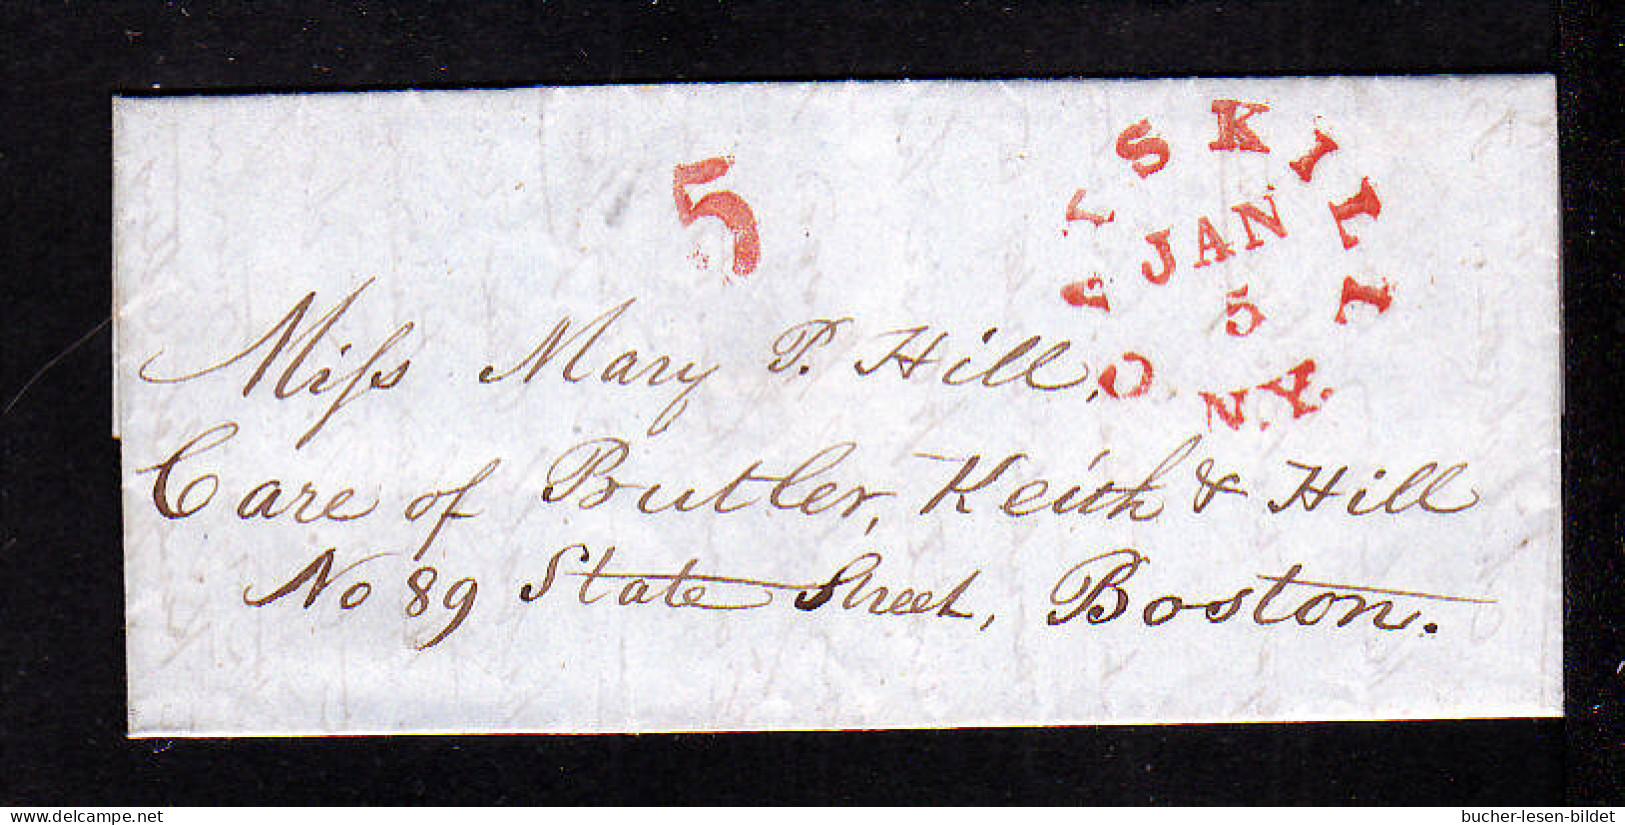 5
CATSKILL
JAN
5
N.Y.
Miss Mary P. Hill,
Care of Butler, Keith & Hill
No 89 State Street, Boston.
delcampe.net
bucher-lesen-bildet